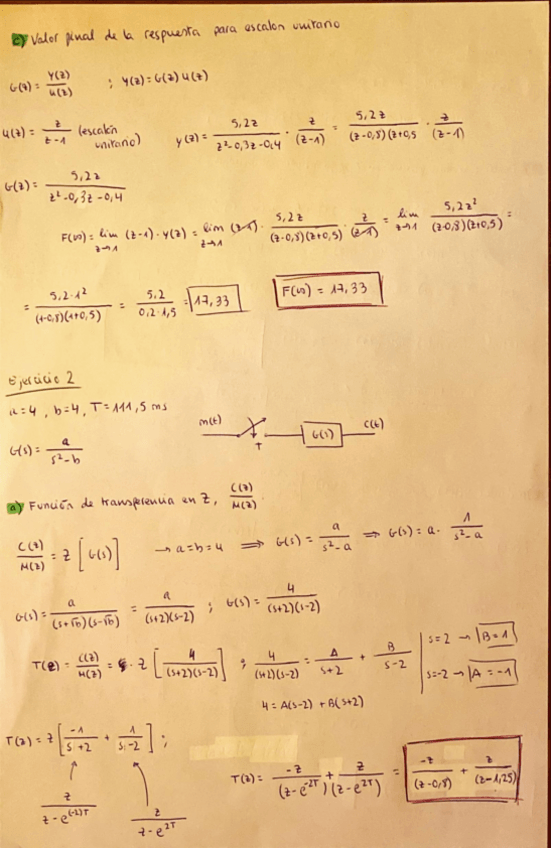 c) Valor final de la respuesta para escalon unitario
G(z) = Y(z)/U(z) ; Y(z) = G(z) U(z)
U(z) = z/(z-1) (escalón unitario) Y(z) = 5,2z/(z²-0,3z-0,4) · z/(z-1) = 5,2z/((z-0,8)(z+0,5) · z/(z-1)
G(z) = 5,2z/(z²-0,3z-0,4)
F(∞) = lim z→1 (z-1) · Y(z) = lim z→1 (z-1) · 5,2z/((z-0,8)(z+0,5)) · z/(z-1) = lim z→1 5,2z²/((z-0,8)(z+0,5)) =
= 5,2·1²/((1-0,8)(1+0,5)) = 5,2/(0,2·1,5) = 17,33 F(∞) = 17,33
Ejercicio 2
a=4, b=4, T=111,5 ms
m(t) T G(s) C(t)
G(s) = a/(s²-b)
a) Función de transferencia en Z, C(z)/M(z).
C(z)/M(z) = Z [G(s)] → a=b=4 ⟹ G(s) = a/(s²-a) ⟹ G(s) = a · 1/(s²-a)
G(s) = a/((s+√b)(s-√b)) = a/((s+2)(s-2)) ; G(s) = 4/((s+2)(s-2))
T(z) = C(z)/M(z) = · Z [4/((s+2)(s-2))] ; 4/((s+2)(s-2)) = A/(s+2) + B/(s-2) s=2 → B=1
s=-2 → A=-1
4 = A(s-2) + B(s+2)
T(z) = Z [-1/(s+2) + 1/(s-2)] ;
z/(z-e^(-2)T) z/(z-e^2T)
T(z) = -z/(z-e^-2T) + z/(z-e^2T) = -z/(z-0,8) + z/(z-1,25)